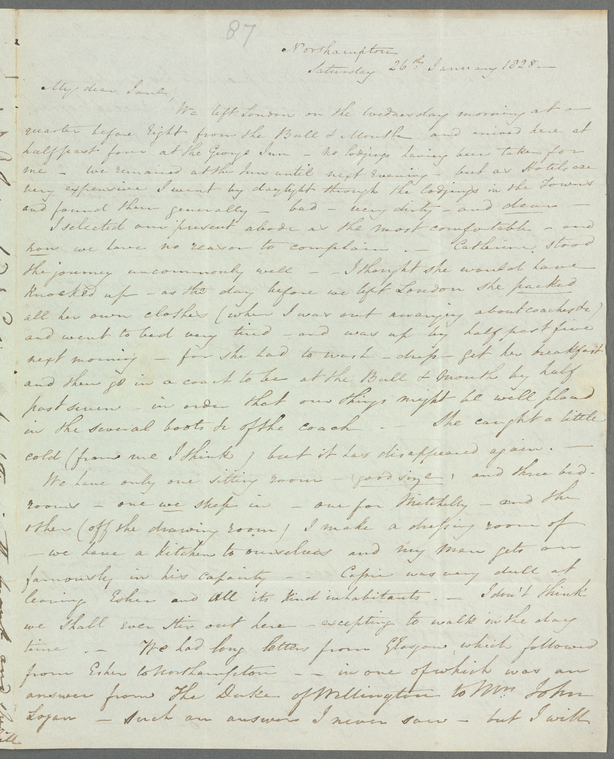 87
Northampton
Saturday 26th January 1828 —
My dear Jane,
We left London on the Wednesday morning at a
quarter before Eight from the Bull & Mouth and arrived here at
half past four at the George Inn — no lodgings having been taken for
me — we remained at the Inn until next evening — but as Hotels are
very expensive I went by daylight through the lodgings in the Town
and found them generally — bad — very dirty — and dear —
I selected our present abode as the most comfortable — and
now we have no reason to complain. — Catherine stood
the journey uncommonly well — I thought she would have
knocked up — as the day before we left London she packed
all her own clothes (when I was out arranging about coaches &c)
and went to bed very tired — and was up by half past five
next morning — for she had to wash — dress — get her breakfast
and then go in a coach to be at the Bull & Mouth by half
past seven — in order that our things might be well placed
in the several boots &c of the coach. — She caught a little
cold (from me I think) but it has disappeared again. —
We have only one sitting room — good size, and three bed-
rooms — one we sleep in — one for — and the
other (off the drawing room) I make a dressing room of
— we have a kitchen to ourselves and my man gets on
famously in his capacity — was very dull at
leaving Esher and all its kind inhabitants. — I don't think
we shall ever stir out here — excepting to walk in the day
time. — We had long letters from Glasgow which followed
from Esher to Northampton — in one of which was an
answer from The Duke of Wellington to Mrs John
Logan — such an answer I never saw — but I will